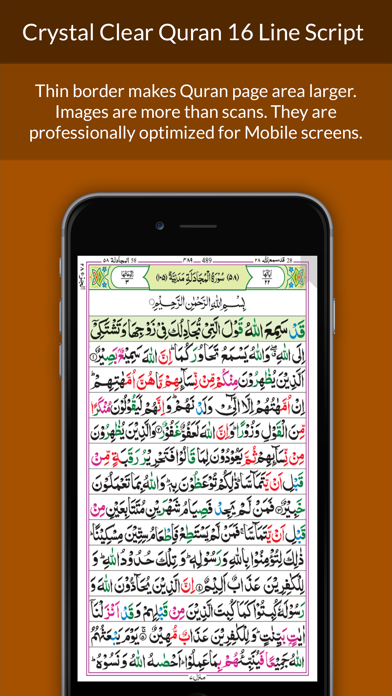 Crystal Clear Quran 16 Line Script
Thin border makes Quran page area larger.
Images are more than scans. They are
professionally optimized for Mobile screens.
28 قد سمع الله ٢٨
489
58 المجادلة ٥٨
اٰیاتها ٢٢
(٥٨) سُوْرَةُ الْمُجَادَلَةِ مَدَنِيَّةٌ (١٠٥)
رکوعاتها ٣
بِسْمِ اللّٰهِ الرَّحْمٰنِ الرَّحِيْمِ
قَدْ سَمِعَ اللّٰهُ قَوْلَ الَّتِيْ تُجَادِلُكَ فِيْ زَوْجِهَا وَتَشْتَكِيْٓ
اِلَى اللّٰهِ ۖ وَاللّٰهُ يَسْمَعُ تَحَاوُرَكُمَا ؕ اِنَّ اللّٰهَ سَمِيْعٌۢ بَصِيْرٌ ۝۱
اَلَّذِيْنَ يُظٰهِرُوْنَ مِنْكُمْ مِّنْ نِّسَآئِهِمْ مَّا هُنَّ اُمَّهٰتِهِمْ ؕ
اِنْ اُمَّهٰتُهُمْ اِلَّا الّٰٓـِٔيْ وَلَدْنَهُمْ ؕ وَاِنَّهُمْ لَيَقُوْلُوْنَ مُنْكَرًا
مِّنَ الْقَوْلِ وَزُوْرًا ؕ وَاِنَّ اللّٰهَ لَعَفُوٌّ غَفُوْرٌ ۝۲ وَالَّذِيْنَ يُظٰهِرُوْنَ
مِنْ نِّسَآئِهِمْ ثُمَّ يَعُوْدُوْنَ لِمَا قَالُوْا فَتَحْرِيْرُ رَقَبَةٍ مِّنْ
قَبْلِ اَنْ يَّتَمَآسَّا ؕ ذٰلِكُمْ تُوْعَظُوْنَ بِهٖ ؕ وَاللّٰهُ بِمَا تَعْمَلُوْنَ
خَبِيْرٌ ۝۳ فَمَنْ لَّمْ يَجِدْ فَصِيَامُ شَهْرَيْنِ مُتَتَابِعَيْنِ مِنْ
قَبْلِ اَنْ يَّتَمَآسَّا ۚ فَمَنْ لَّمْ يَسْتَطِعْ فَاِطْعَامُ سِتِّيْنَ مِسْكِيْنًا ؕ
ذٰلِكَ لِتُؤْمِنُوْا بِاللّٰهِ وَرَسُوْلِهٖ ؕ وَتِلْكَ حُدُوْدُ اللّٰهِ ؕ وَ
لِلْكٰفِرِيْنَ عَذَابٌ اَلِيْمٌ ۝۴ اِنَّ الَّذِيْنَ يُحَآدُّوْنَ اللّٰهَ وَ
رَسُوْلَهٗ كُبِتُوْا كَمَا كُبِتَ الَّذِيْنَ مِنْ قَبْلِهِمْ وَقَدْ اَنْزَلْنَآ
اٰيٰتٍۭ بَيِّنٰتٍ ؕ وَلِلْكٰفِرِيْنَ عَذَابٌ مُّهِيْنٌ ۝۵ يَوْمَ يَبْعَثُهُمُ
اللّٰهُ جَمِيْعًا فَيُنَبِّئُهُمْ بِمَا عَمِلُوْا ؕ اَحْصٰىهُ اللّٰهُ وَنَسُوْهُ ؕ